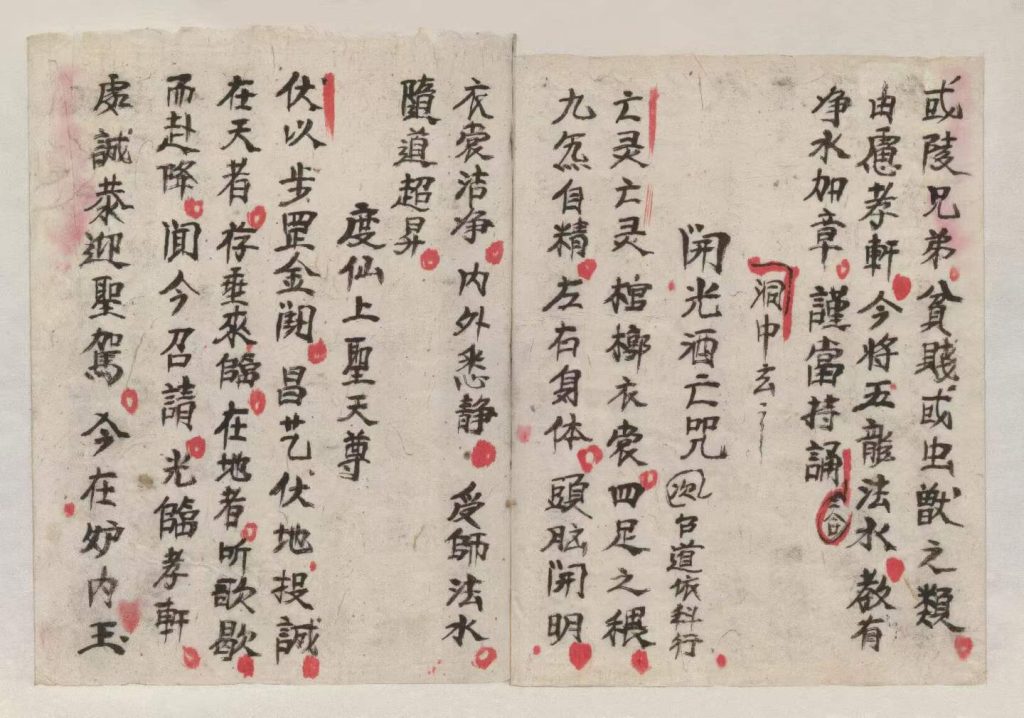 或陵兄弟貧賤或虫獸之類
由慮孝軒今将五龍法水教有
净水加章謹當持誦 合
洞中玄
開光洒亡咒 次 臣道依科行
亡灵亡灵棺槨衣裳四足之穢
九炁自精左右身体頭脑開明
衣裳洁净内外悉静受師法水
隨道超昇
度仙上聖天尊
伏以步罡金闕昌艺伏地投誠
在天者存垂來臨在地者听歌歇
而赴降聞今召請光臨孝軒
虔誠恭迎聖駕今在妒内玉